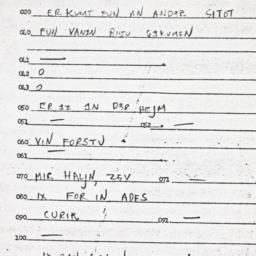 020 ER KUMT FUN AN ANDER STOT
040 FUN VANIN BISTU GIKUMEN
011 —
012 0
013 0
050 ER IZ IN DER HEJM
051 — 052 —
060 VIN FORSTU
061 —
070 MIR HALJN, ZEV 071 —
080 IX FOR IN ADES
090 CURIK 091 —
100 —